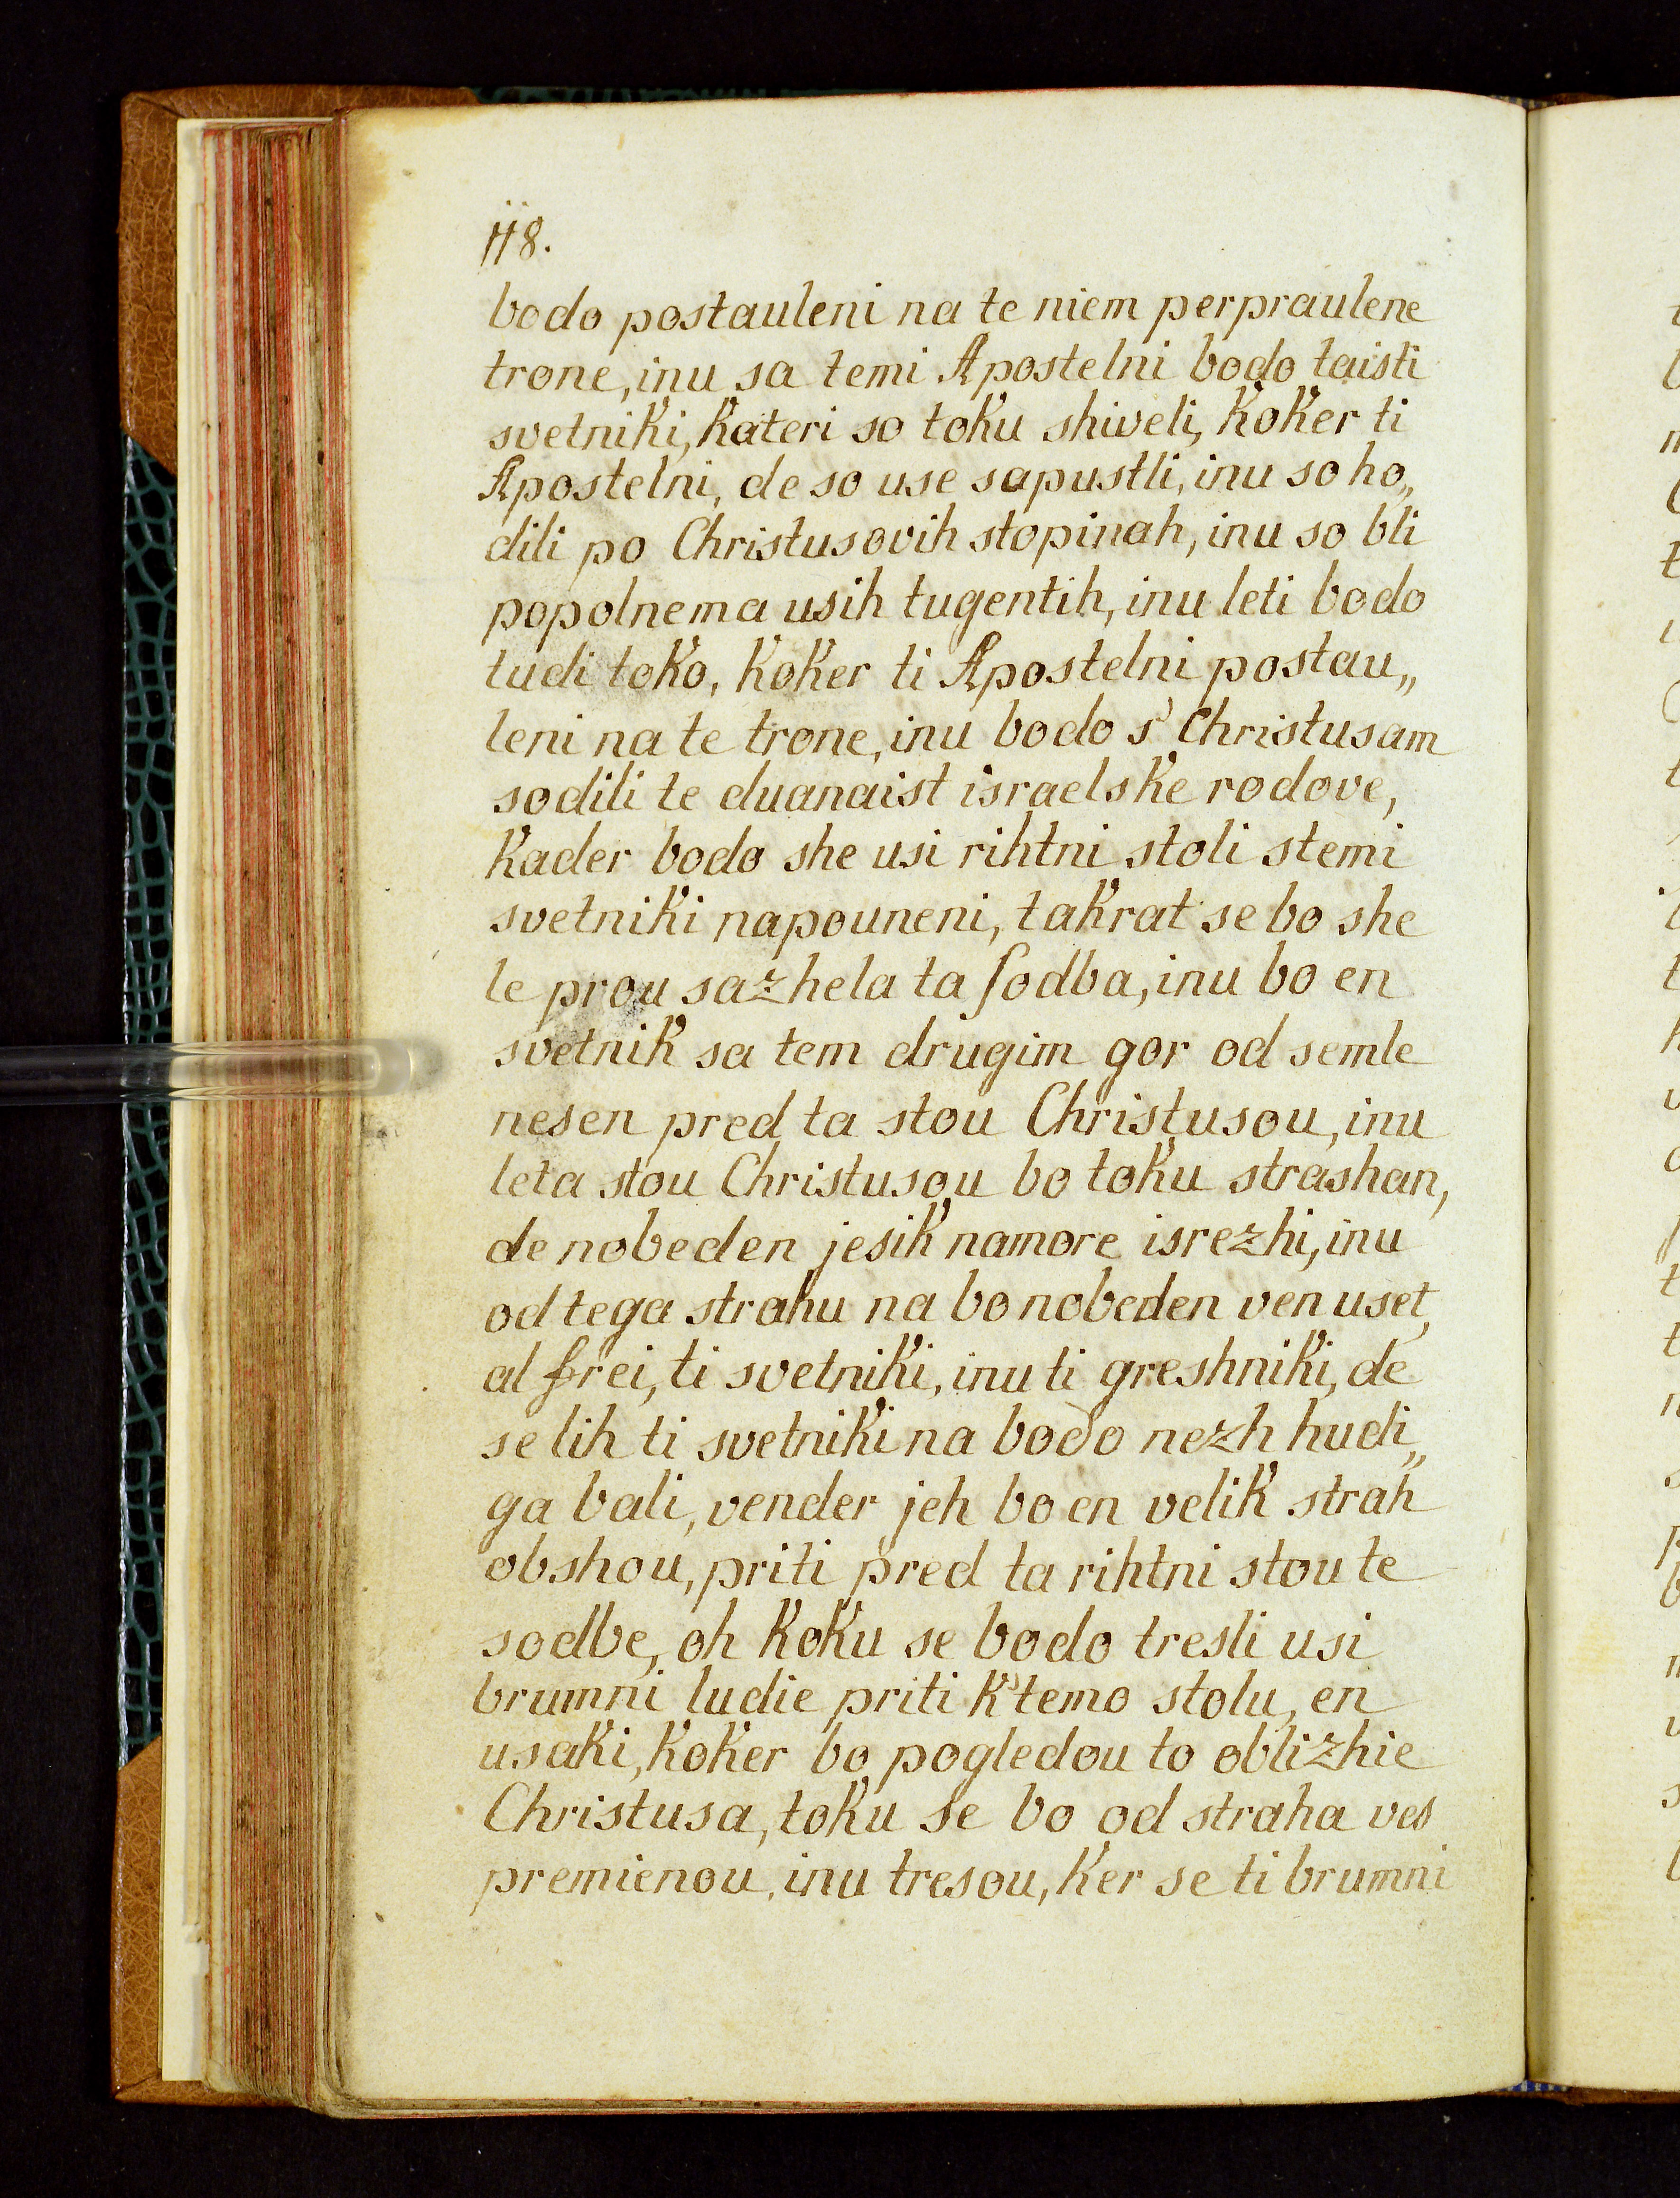 118.
bodo postauleni na te niem perpraulene
trone, inu sa temi Apostelni bodo taisti
svetniki, kateri so toku shiveli, koker ti
Apostelni, de so use sapustli, inu so ho„
dili po Christusovih stopinah, inu so bli
popolnema usih tugentih, inu leti bodo
tudi toko, koker ti Apostelni postau„
leni na te trone, inu bodo s' Christusam
sodili te duanaist israelske rodove,
kader bodo she usi rihtni stoli stemi
svetniki napouneni, takrat se bo she
le prou sazhela ta ſodba, inu bo en
svetnik sa tem drugim gor od semle
nesen pred ta stou Christusou, inu
leta stou Christusou bo toku strashan,
de nobeden jesik namore isrezhi, inu
od tega strahu na bo nobeden ven uset,
al frei, ti svetniki, inu ti greshniki, de
se lih ti svetniki na bodo nezh hudi„
ga bali, vender jeh bo en velik strah
obshou, priti pred ta rihtni stou te
sodbe, oh koku se bodo tresli usi
brumni ludie priti k'temo stolu, en
usaki, koker bo pogledou to oblizhie
Christusa, toku se bo od straha ves
premienou, inu tresou, ker se ti brumni